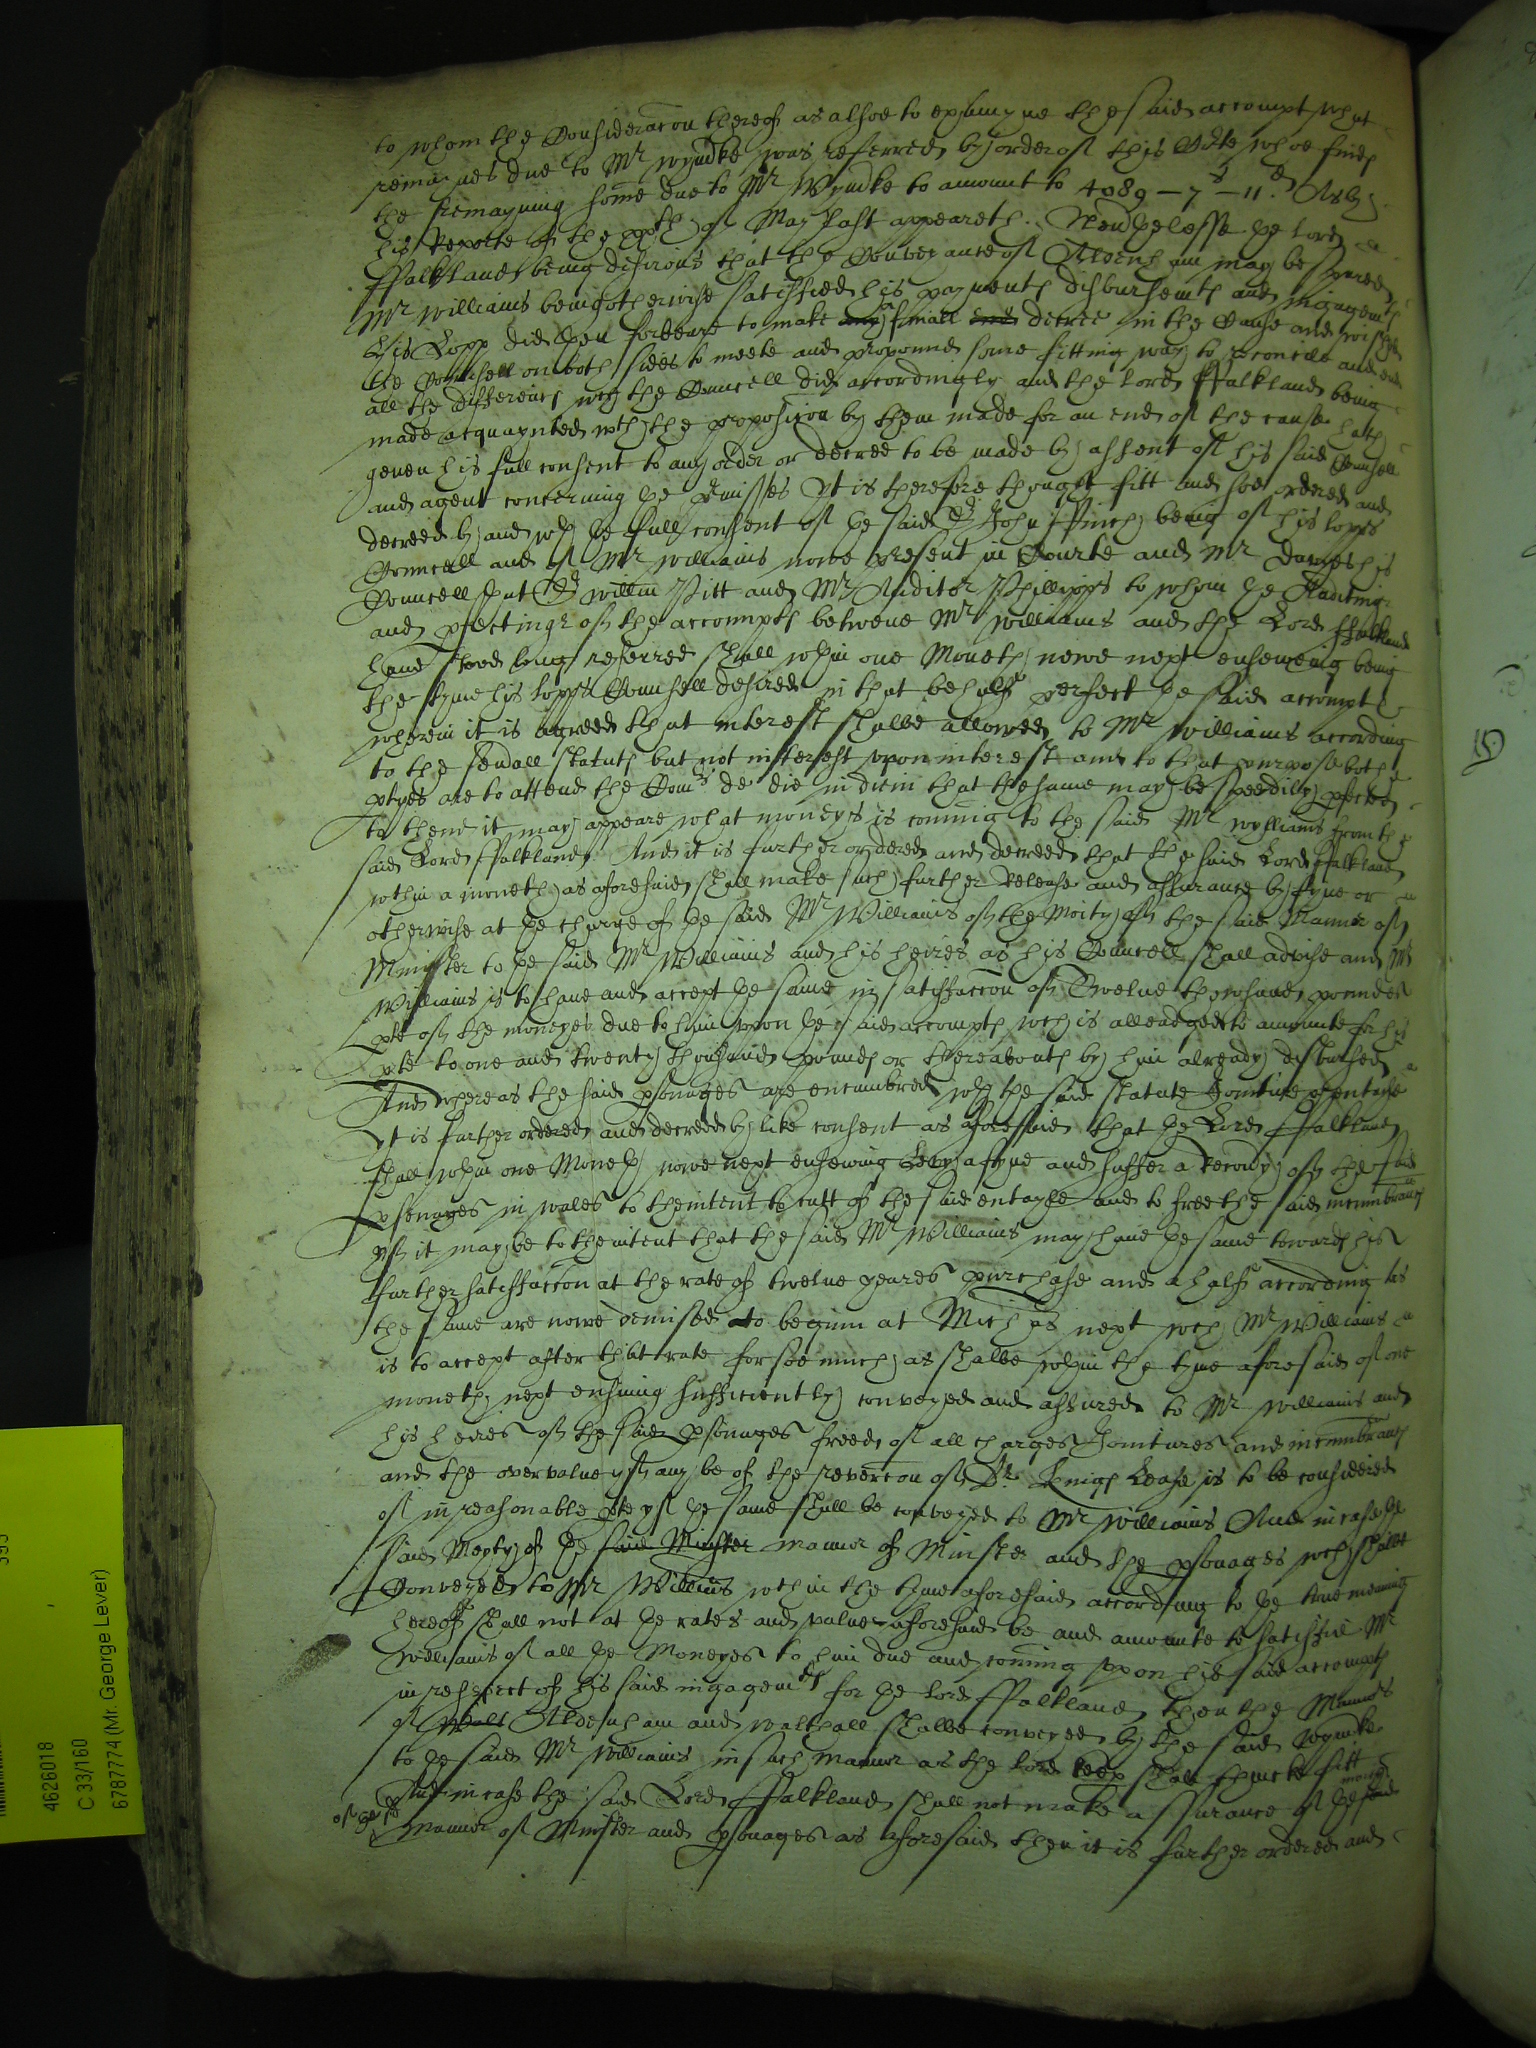 to whom the Consideracon thereof as alsoe to examyne the said accompt what
remaines due to Mr Wymke was referred by order of this Corte whoe finds
the remayning some due to Mr Wymke to amount to 4089 - 7s - 11d As by
his Reporte of the xxth of May last appeareth. Nevthelesse the lord
ffalkland being desirous that the Conveyance of Aldenham may be spared
Mr Williams being otherwise satisfied his payments disbursemts and ingagemts
his Lopp did then forbeare to make a finall decree in the Cause and wished
the Counsell on both sides to meete and propound some fitting way to reconcile and end
all the differences wch the Councell did accordingly and the lord ffalkland being
made acquaynted wth the proposicon by them made for an end of the cause hath
geven his full consent to any order or decree to be made by assent of his said Counsell
and agent concerning the pmisses Yt is therefore thought fitt and soe ordered and
decreed by and wth the full consent of the said Sr John ffinch being of his lopps
Councell and of Mr Williams nowe present in Courte and Mr Dames his
Councell that Sr Willm Pitt and Mr Auditor Phillipps to whom the Auditing
and pfecting of the accompts betwene Mr Williams and the Lord ffalkland
have stood long referred shall wthin one Moneth nowe next ensueing being
the tyme his lopps Counsell desired in that behalf perfect the said accompt
wherein it is agreed that interest shalbe allowed to Mr Williams according
to the sevall statuts but not interest upon interest and to that purpose both
ptyes are to attend the Comrs de die in diem that the same may be speedily pfected
to thend it may appeare what moneys is coming to the said Mr Wylliams from the
said Lord ffalkland And it is further ordered and decreed that the said Lord ffalkland
wthin a moneth as aforesaid shall make such further Release and assurance by fyne or
otherwise at the charge of the said Mr Williams of the Moity of the said Mannor of
Minster to the said Mr Williams and his heires as his Councell shall advise and Mr
Williams is to have and accept the same in satisfaccon of Twelve thowsand poundes
pte of the moneyes due to him upon the said accompts wch is alleadged to amounte for his
pte to one and twenty thousand pounds or thereabouts by him already disbursed
And whereas the said psonages are encumbred wth the said statute Jointure & entayle
Yt is further ordered and decreed by like consent as aforesaid that the Lord ffalkland
shall wthin one Moneth nowe next ensewing Levy a fyne and suffer a Recovy of the said
psonages in Wales to thentent to cutt of the said entayle and to free the said incumbrances
yf it may be to thentent that the said Mr Williams may have the same towards his
further satisfaccon at the rate of twelve yeares purchase and a half according as
the same are nowe demised to beginn at Michas next wch Mr Williams
is to accept after that rate for soe much as shalbe wthin the tyme aforesaid of one
moneth next ensuing sufficiently conveyed and assured to Mr Williams and
his heires of the said psonages freed of all charges Jointures and incumbrances
and the overvalue yf any be of the revercon of Dr Kings Lease is to be considered
of in reasonable pte yf the same shall be conveyed to Mr Williams And in case the
said Moyty of the said Minster mannor of Minster and the psonages wch shalbe
Conveyed to Mr Williams wthin the tyme aforesaid according to the true meaning
hereof shall not at the rates and values aforesaid be and amounte to satisfie Mr
Williams of all the Moneyes to him due and coming upon his said accompts
in respect of his said ingagemts for the lord ffalkland then the Mannors
of Walt Aldenham and Walthall shalbe conveyed by the said Wymke
to the said Mr Williams in such manner as the lord keep shall thincke fitt
And in case the said Lord ffalkland shall not make assurance of the said moiety
of the sd
mannor of Minster and psonages as aforesaid then it is further ordered and
4626018
C 33/160
6787774 (Mr George Lever)